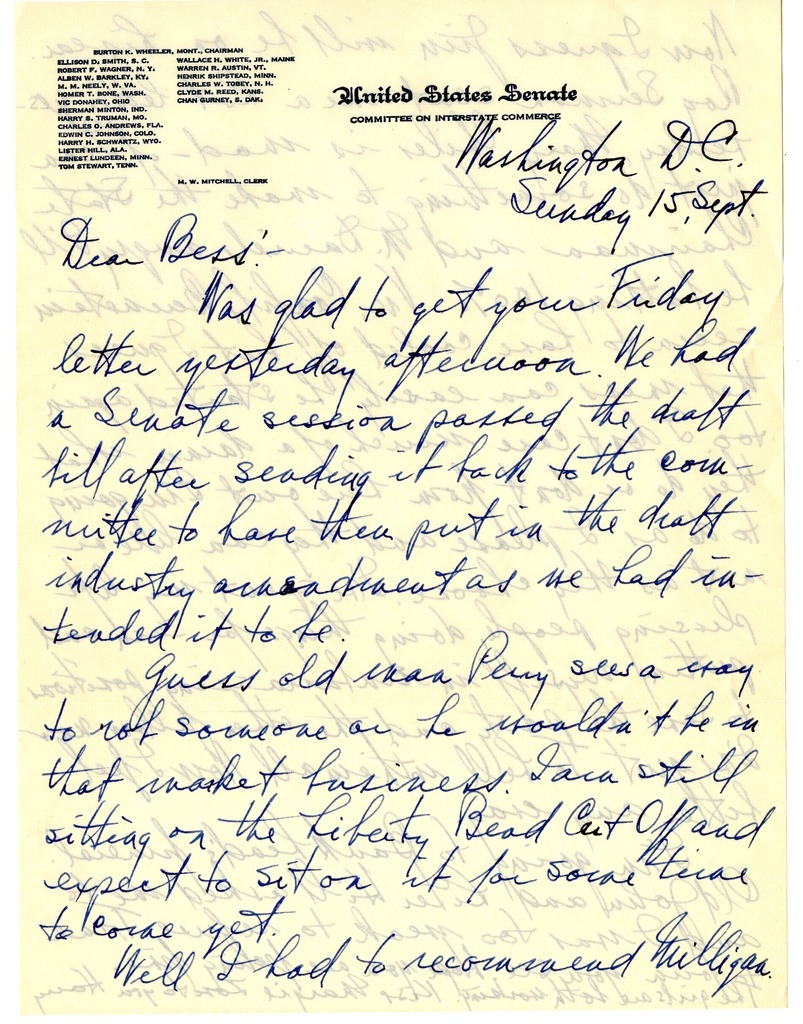 BURTON K. WHEELER, MONT., CHAIRMAN
ELLISON D. SMITH, S. C.
ROBERT F. WAGNER, N. Y.
ALBEN W. BARKLEY, KY.
M. M. NEELY, W. VA.
HOMER T. BONE, WASH.
VIC DONAHEY, OHIO
SHERMAN MINTON, IND.
HARRY S. TRUMAN, MO.
CHARLES O. ANDREWS, FLA.
EDWIN C. JOHNSON, COLO.
HARRY H. SCHWARTZ, WYO.
LISTER HILL, ALA.
ERNEST LUNDEEN, MINN.
TOM STEWART, TENN.
WALLACE H. WHITE, JR., MAINE
WARREN R. AUSTIN, VT.
HENRIK SHIPSTEAD, MINN.
CHARLES W. TOBEY, N. H.
CLYDE M. REED, KANS.
CHAN GURNEY, S. DAK.
M. W. MITCHELL, CLERK
United States Senate
COMMITTEE ON INTERSTATE COMMERCE
Washington D.C.
Sunday 15, Sept.
Dear Bess:-
Was glad to get your Friday
letter yesterday afternoon. We had
a Senate session passed the draft
bill after sending it back to the com-
mittee to have them put in the draft
industry amendment as we had in-
tended it to be.
Guess old man Perry sees a way
to rob someone or he wouldn't be in
that market business. I am still
sitting on the Liberty Bend Cut Off and
expect to sit on it for some time
to come yet.
Well I had to recommend Milligan.